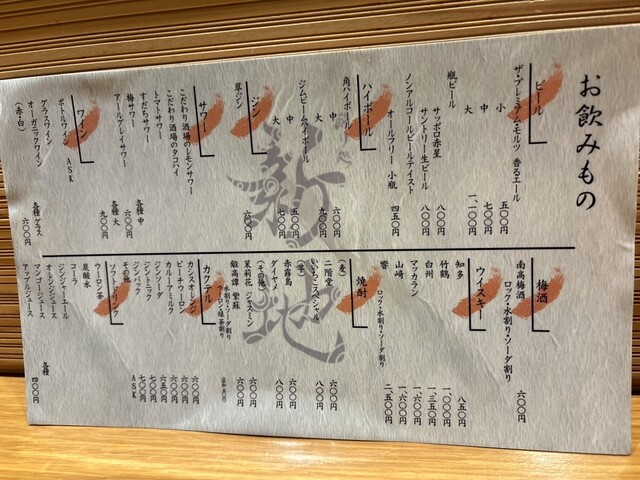 お飲みもの
ビール
ザ・プレミアムモルツ 香るエール
小 五〇〇円
中 七〇〇円
大 一、一〇〇円
瓶ビール
サッポロ赤星 八〇〇円
サントリー生ビール 八〇〇円
ノンアルコールビールテイスト
オールフリー 小瓶 四五〇円
ハイボール
角ハイボール
中 六〇〇円
大 九〇〇円
ジムビームハイボール
中 五〇〇円
大 七〇〇円
ジン
翠ジン 六〇〇円
サワー
こだわり酒場のレモンサワー
こだわり酒場のタコハイ
トマトサワー
すだちサワー
梅サワー 各種 中 六〇〇円
アールグレイサワー 各種 大 九〇〇円
ワイン
ボトルワイン ASK
グラスワイン
オーガニックワイン
(赤・白) 各種 グラス 六〇〇円
梅酒
南高梅酒 六〇〇円
ロック・水割り・ソーダ割り
ウイスキー
知多 八五〇円
竹鶴 一、〇〇〇円
白州 一、三五〇円
マッカラン 一、六〇〇円
山崎 一、六〇〇円
響 二、五〇〇円
ロック・水割り・ソーダ割り
焼酎
(麦)
二階堂 六〇〇円
いいちこスペシャル 八〇〇円
(芋)
赤霧島 六〇〇円
ダイヤメ 八〇〇円
(その他)
茉莉花 ジャスミン 六〇〇円
鍛高譚 紫蘇 六〇〇円
水割り・ソーダ割り
ウーロン・緑茶割り
カクテル
カシスオレンジ 六〇〇円
ピーチウーロン 六〇〇円
カルーアミルク 六〇〇円
ジンソーダ 六五〇円
ジントニック 七〇〇円
ジンバック 七〇〇円
その他 ASK
ソフトドリンク
ウーロン茶
炭酸水
コーラ
ジンジャーエール
オレンジジュース
マンゴージュース 各種
アップルジュース 四〇〇円
新地